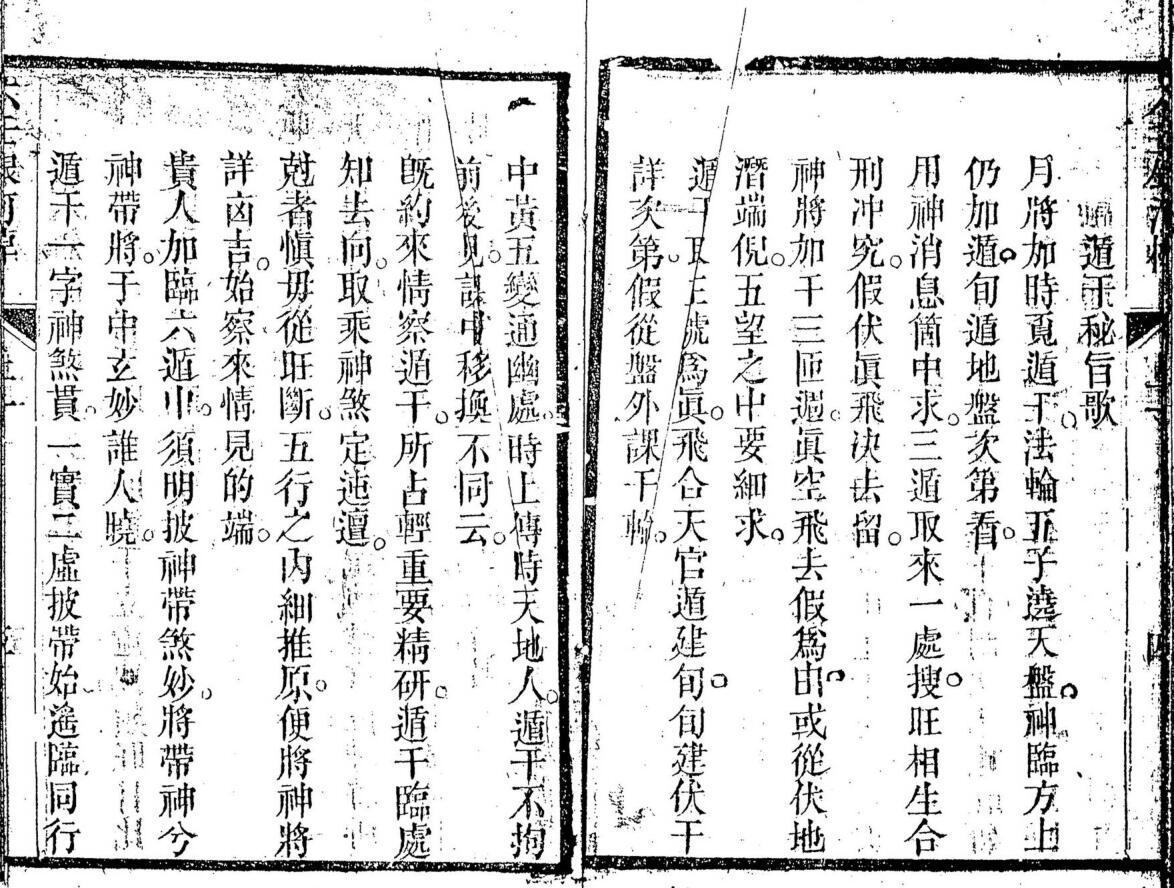 遁干秘旨歌
月將加時覓遁干。法輪五子遶天盤。神臨方上
仍加遁。旬遁地盤次第看。
用神消息箇中求。三遁取來一處搜。旺相生合
刑冲究。假伏眞飛決去留。
神將加干三匝遇。眞空飛去假爲由。或從伏地
潛端倪。五望之中要細求。
遁干取 號爲眞。飛合天官遁建旬。旬建伏干
詳次第。假從盤外課干輪。
中黃五變通幽處。時上傳時天地人。遁干不拘
前後見。課中移換不同云。
既約來情察遁干。所占輕重要精研。遁干臨處
知去向。取乘神煞定迍邅。
尅者愼毋從旺斷。五行之內細推原。便將神將
詳凶吉。始察來情見的端。
貴人加臨六遁中。須明披神帶煞妙。將帶神兮
神帶將。于中玄妙誰人曉。
遁干一字神煞貫。一實二虛披帶始。遙臨同行